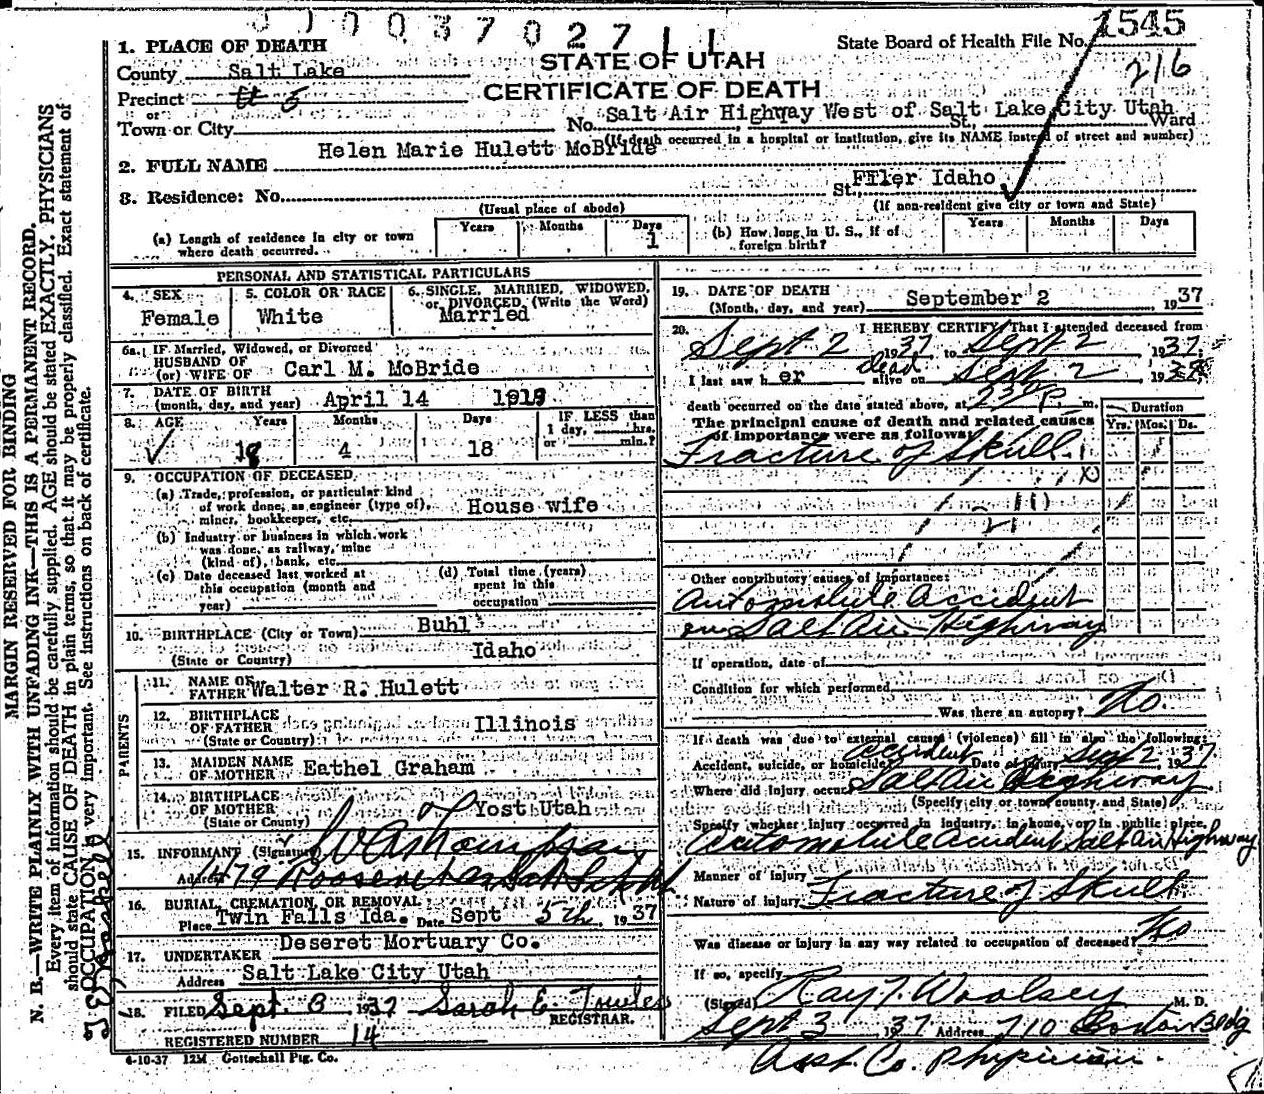 0 0 0 3 7 0 2 7 1 1
1545
State Board of Health File No.
216
1. PLACE OF DEATH
STATE OF UTAH
County Salt Lake
CERTIFICATE OF DEATH
Precinct 5
or
Salt Air Highway West of Salt Lake City Utah
Town or City No. St., Ward
(If death occurred in a hospital or institution, give its NAME instead of street and number)
Helen Marie Hulett McBride
2. FULL NAME
3. Residence: No. St. Filer Idaho
(Usual place of abode)
(If non-resident give city or town and State)
(a) Length of residence in city or town where death occurred.
Years Months Days
1
(b) How long in U. S., if of foreign birth?
Years Months Days
PERSONAL AND STATISTICAL PARTICULARS
4. SEX
Female
5. COLOR OR RACE
White
6. SINGLE, MARRIED, WIDOWED,
or DIVORCED (Write the Word)
Married
6a. IF Married, Widowed, or Divorced
HUSBAND OF
(or) WIFE OF Carl M. McBride
7. DATE OF BIRTH
(month, day, and year) April 14 1919
8. AGE Years Months Days
18 4 18
IF LESS than
1 day, hrs.
or min.?
9. OCCUPATION OF DECEASED
(a) Trade, profession, or particular kind
of work done, as engineer (type of),
miner, bookkeeper, etc. House wife
(b) Industry or business in which work
was done, as railway, mine
(kind of), bank, etc.
(c) Date deceased last worked at
this occupation (month and
year)
(d) Total time (years)
spent in this
occupation
10. BIRTHPLACE (City or Town) Buhl
(State or Country) Idaho
PARENTS
11. NAME OF
FATHER Walter R. Hulett
12. BIRTHPLACE
OF FATHER Illinois
(State or Country)
13. MAIDEN NAME
OF MOTHER Eathel Graham
14. BIRTHPLACE
OF MOTHER Yost Utah
(State or County)
15. INFORMANT (Signature)
Address 479 Roosevelt
16. BURIAL, CREMATION, OR REMOVAL
Place Twin Falls Ida. Date Sept 5th, 1937
Deseret Mortuary Co.
17. UNDERTAKER
Address Salt Lake City Utah
18. FILED Sept. 1937 Sarah E.
REGISTRAR.
REGISTERED NUMBER 14
4-10-37 12M Gottschall Ptg. Co.
19. DATE OF DEATH
(Month, day, and year) September 2 1937
20. I HEREBY CERTIFY, That I attended deceased from
Sept 2 1937 to Sept 2 1937
I last saw h er dead alive on Sept 2 1937
death occurred on the date stated above, at P. m.
The principal cause of death and related causes
of importance were as follows:
Duration
Yrs. Mos. Ds.
Fracture of Skull.
Other contributory causes of importance:
Automobile accident
on Saltair Highway
If operation, date of
Condition for which performed
Was there an autopsy? No.
If death was due to external causes (violence) fill in also the following:
Accident, suicide, or homicide? accident Date of injury Sept 2 1937
Where did injury occur? Saltair Highway
(Specify city or town, county and State)
Specify whether injury occurred in industry, in home, or in public place.
Automobile accident Saltair Highway
Manner of injury
Nature of injury Fracture of Skull
Was disease or injury in any way related to occupation of deceased? No
If so, specify
(Signed) Ray T. Woolsey M. D.
Sept 3 1937 Address 710 Boston Bldg
Asst. Co. Physician.
MARGIN RESERVED FOR BINDING
N. B.—WRITE PLAINLY WITH UNFADING INK—THIS IS A PERMANENT RECORD.
Every item of information should be carefully supplied. AGE should be stated EXACTLY. PHYSICIANS
should state CAUSE OF DEATH in plain terms, so that it may be properly classified. Exact statement of
OCCUPATION is very important. See instructions on back of certificate.